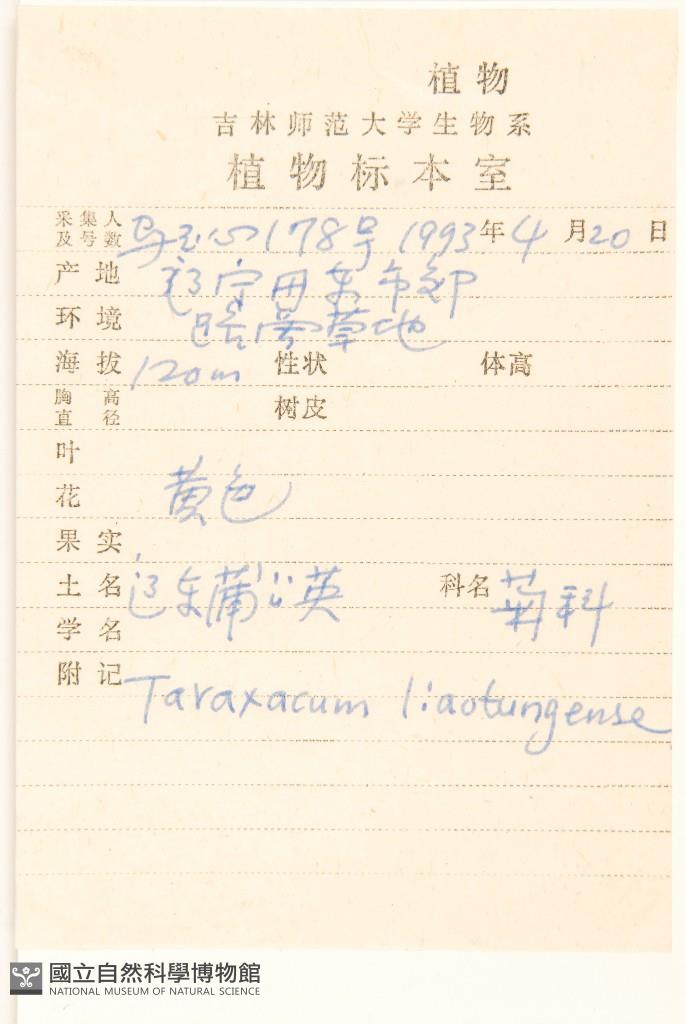 植物
吉林师范大学生物系
植物标本室
采集人及号数 马玉心178号 1993年4月20日
产地 辽宁丹东市郊
环境 路旁草地
海拔 120m 性状 体高
胸高直径 树皮
叶
花 黄色
果实
土名 辽东蒲公英 科名 菊科
学名
附记 Taraxacum liaotungense
國立自然科學博物館
NATIONAL MUSEUM OF NATURAL SCIENCE